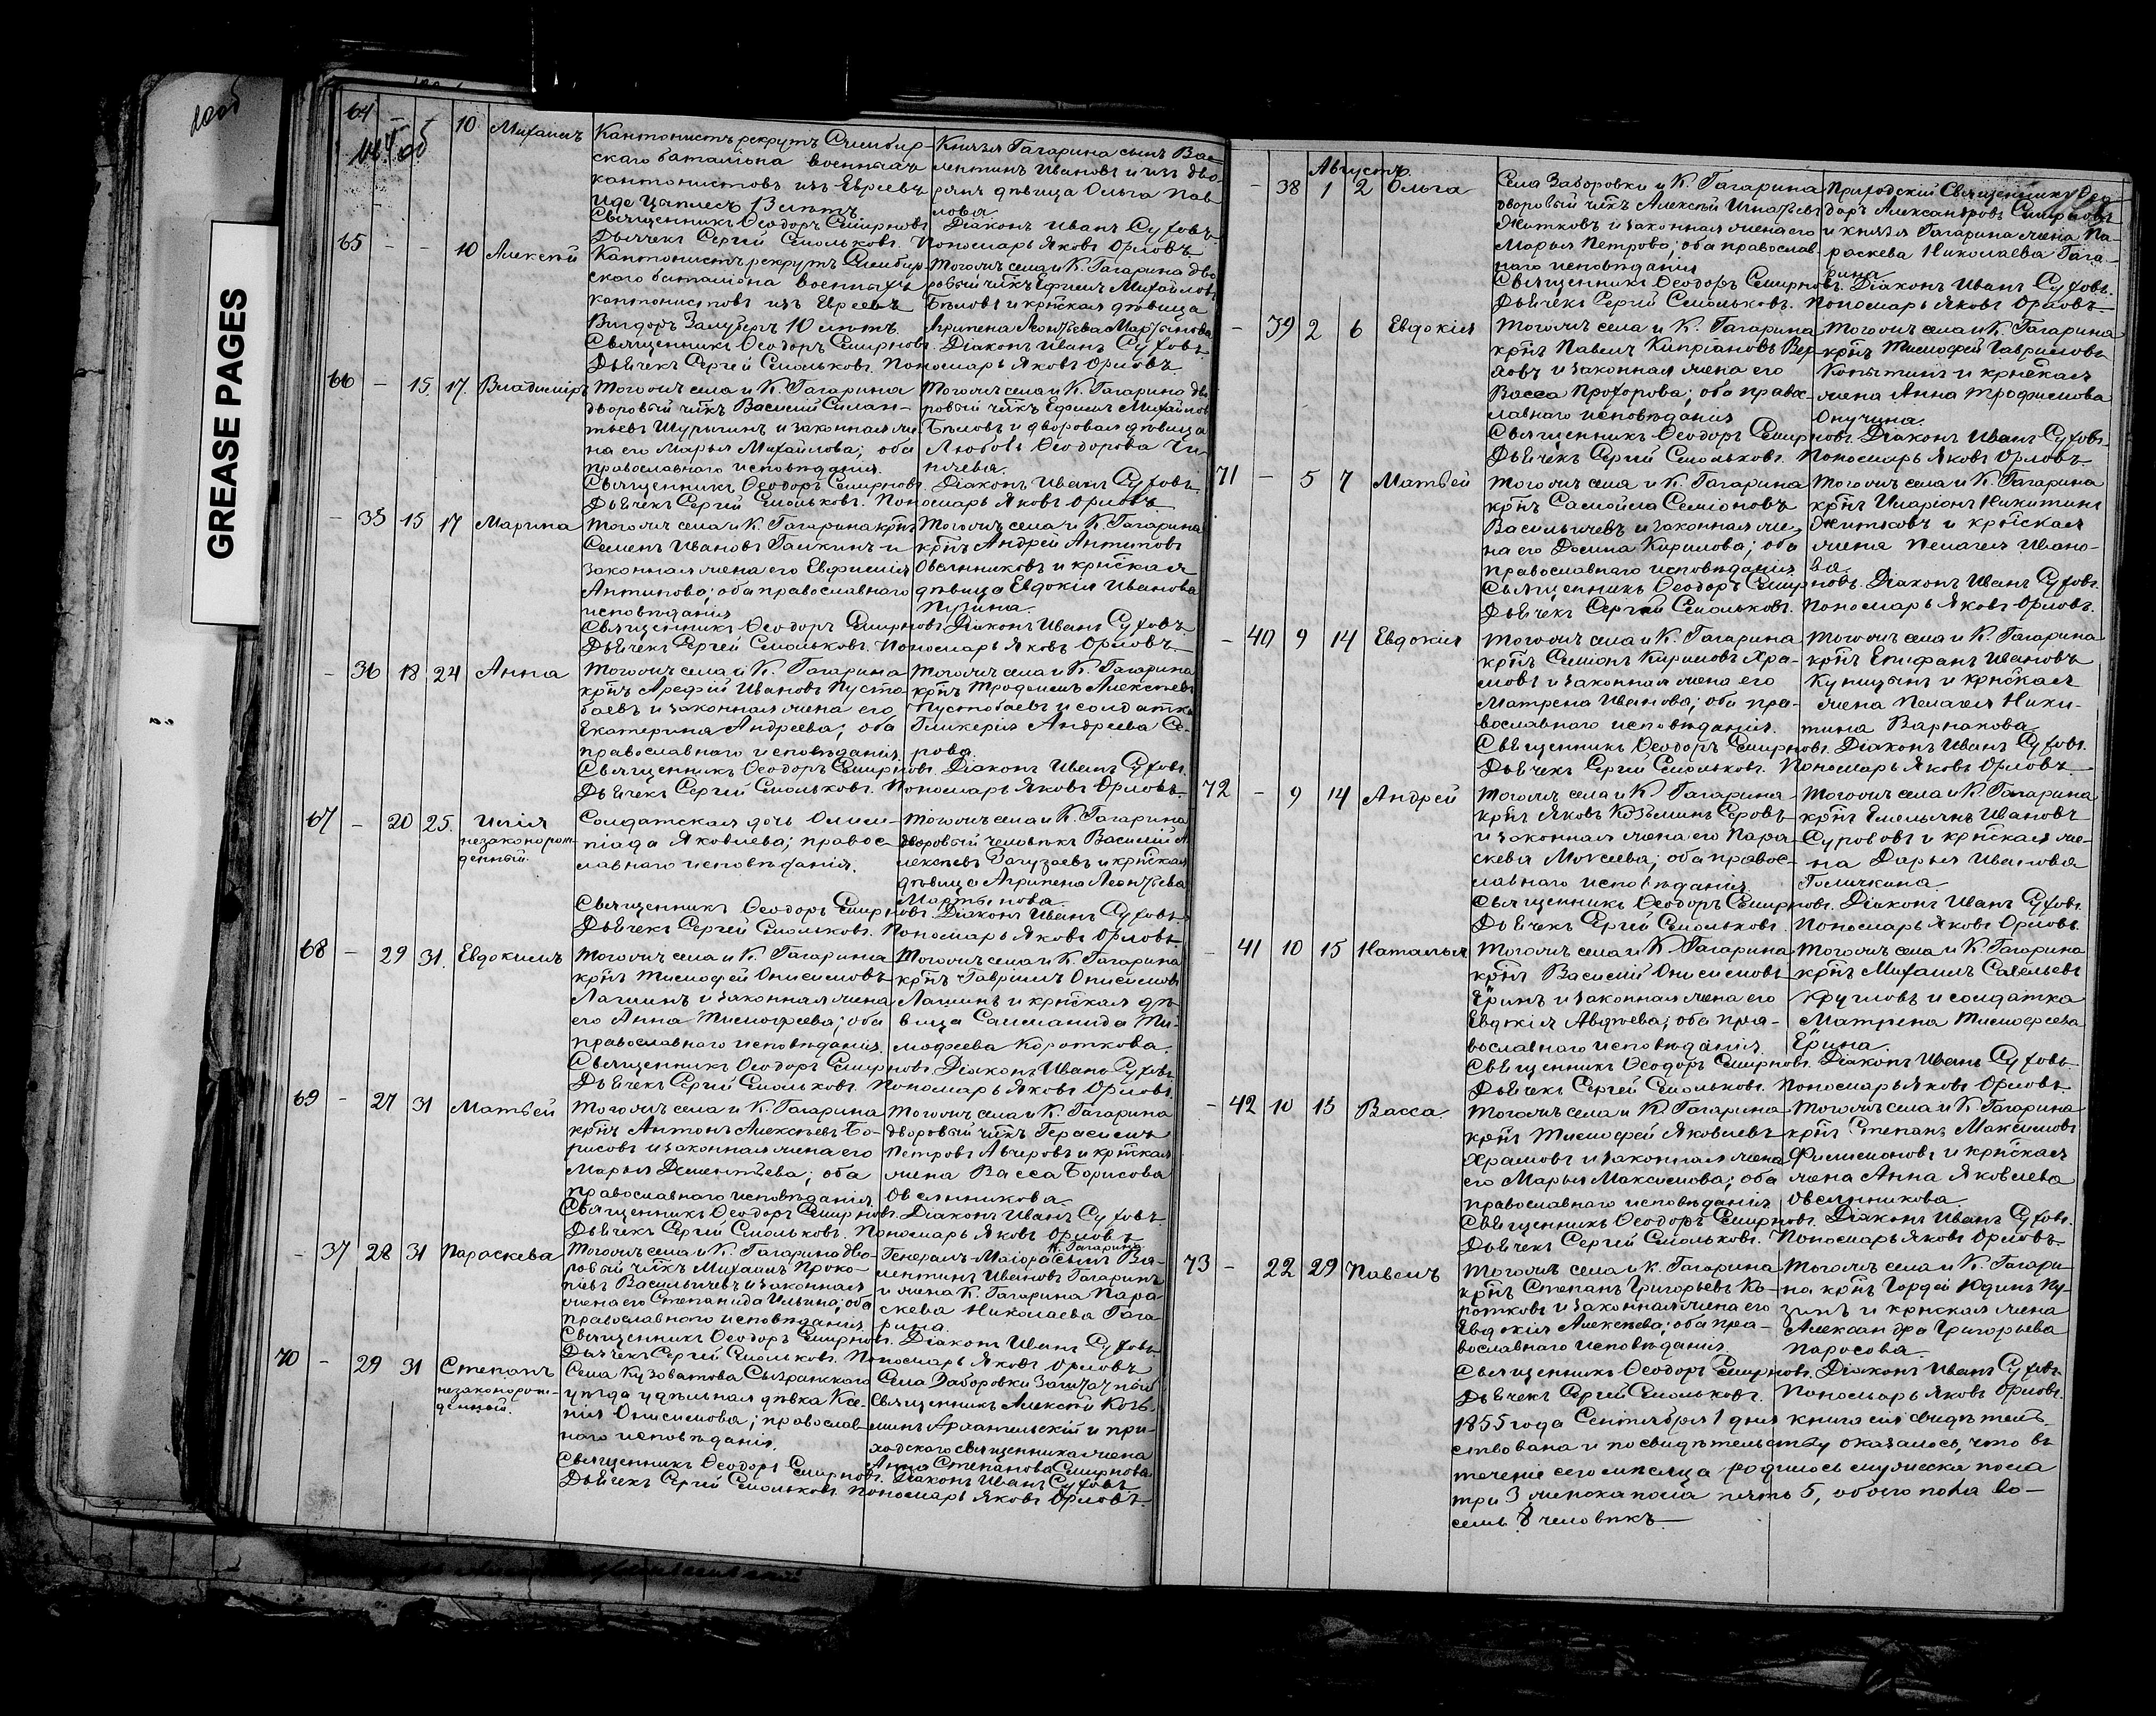 GREASE PAGES
64 - - 10 Михаилъ
Кантонистъ рекрутъ Симбир-
скаго баталіона военныхъ
кантонистовъ изъ Евреевъ
13 лѣтъ
Князя Гагарина сынъ Ва-
лентинъ Ивановъ и изъ дво-
рянъ дѣвица Ольга Пав
лова
Священникъ Ѳеодоръ Смирновъ. Діаконъ Иванъ Суховъ
Дьячекъ Сергей Смольковъ. Пономарь Яковъ Орловъ
65 - - 10 Алексѣй
Кантонистъ рекрутъ Симбир-
скаго баталіона военныхъ
кантонистовъ изъ Евреевъ
10 лѣтъ.
Тогожъ села и К. Гагарина дво
ровый чл͞къ Ефимъ Михайловъ
Бѣловъ и кр͞нская дѣвица
Агрипена Леонтьева Мартынова
Священникъ Ѳеодоръ Смирновъ. Діаконъ Иванъ Суховъ
Дьячекъ Сергей Смольковъ. Пономарь Яковъ Орловъ
66 - 15. 17. Владиміръ
Тогожъ села и К. Гагарина
дворовый чл͞къ Василій Силан-
тьевъ Шурыгинъ и законная же-
на его Марья Михайлова; оба
православнаго исповѣданія.
Тогожъ села и К. Гагарина дво
ровый чл͞къ Ефимъ Михайлов
Бѣловъ и дворовая дѣвица
Любовь Ѳеодорова Чи-
Священникъ Ѳеодоръ Смирновъ. Діаконъ Иванъ Суховъ
Дьячекъ Сергей Смольковъ. Пономарь Яковъ Орловъ
- 35 15 17 Марина
Тогожъ села и К. Гагарина кр͞нъ
Семенъ Ивановъ Галкинъ и
законная жена его Евфимія
Антипова; оба православнаго
исповѣданія
Тогожъ села и К. Гагарина
кр͞нъ Андрей Антиповъ
Овсянниковъ и кр͞нская
дѣвица Евдокія Иванова
Пузина.
Священникъ Ѳеодоръ Смирновъ. Діаконъ Иванъ Суховъ.
Дьячекъ Сергей Смольковъ. Пономарь Яковъ Орловъ
- 36 18 24 Анна
Тогожъ села и К. Гагарина
кр͞нъ Арефій Ивановъ Пусто
баевъ и законная жена его
Екатерина Андреева; оба
православнаго исповѣданія
Тогожъ села и К. Гагарина
кр͞нъ Трофимъ Алексѣевъ
Пустобаевъ и солдатка
Гликерія Андреева Се-
рова.
Священникъ Ѳеодоръ Смирновъ. Діаконъ Иванъ Суховъ.
Дьячекъ Сергей Смольковъ. Пономарь Яковъ Орловъ
67 - 20 25. Илія
незаконорож-
денный.
Солдатская дочь Олим-
піада Яковлева; правос-
славнаго исповѣданія.
Тогожъ села и К. Гагарина
дворовый человѣкъ Василій А
лексѣевъ Загузаевъ и кр͞нская
дѣвица Агрипена Леонтьева
Мартынова
Священникъ Ѳеодоръ Смирновъ. Діаконъ Иванъ Суховъ
Дьячекъ Сергей Смольковъ. Пономарь Яковъ Орловъ
68 - 29 31. Евдокимъ
Тогожъ села и К. Гагарина
кр͞нъ Тимофей Онисимовъ
Лагшинъ и законная жена
его Анна Тимофеева; оба
православнаго исповѣданія.
Тогожъ села и К. Гагарина
кр͞нъ Гавріилъ Онисимовъ
Лагшинъ и кр͞нская дѣ-
вица Саломанида Ти-
мофеева Короткова.
Священникъ Ѳеодоръ Смирновъ. Діаконъ Иванъ Суховъ
Дьячекъ Сергей Смольковъ. Пономарь Яковъ Орловъ
69 - 27 31 Матвѣй
Тогожъ села и К. Гагарина
кр͞нъ Антонъ Алексѣевъ Бо-
рисовъ и законная жена его
Марья Дементьева; оба
православнаго исповѣданія
Тогожъ села и К. Гагарина
дворовый чл͞къ Герасимъ
Петровъ Авчеровъ и кр͞нская
жена Васса Борисова
Овсянникова
Священникъ Ѳеодоръ Смирновъ. Діаконъ Иванъ Суховъ
Дьячекъ Сергей Смольковъ. Пономарь Яковъ Орловъ
- 37 28 31 Параскева
Тогожъ села и К. Гагарина дво-
ровый чл͞къ Михаилъ Проко-
піевъ Васильичевъ и законная
жена его Степанида Ильина; оба
православнаго исповѣданія
К. Гагарина
Генералъ-Маіора сынъ Ва-
лентинъ Ивановъ Гагаринъ
и жена К. Гагарина Пара
скева Николаева Гага
рина.
Священникъ Ѳеодоръ Смирновъ. Діаконъ Иванъ Суховъ
Дьячекъ Сергей Смольковъ. Пономарь Яковъ Орловъ
70 - 29 31 Степанъ
незаконорож-
денный.
Села Кузоватова Сызранскаго
уѣзда удѣльная дѣвка Ксе-
нія Онисимова; православ-
наго исповѣданія.
Села Заборовки Заштатный
Священникъ Алексѣй Козь-
минъ Архангельскій и при-
ходскаго священника жена
Анна Степанова Смирнова
Священникъ Ѳеодоръ Смирновъ. Діаконъ Иванъ Суховъ
Дьячекъ Сергей Смольковъ. Пономарь Яковъ Орловъ
Августъ.
- 38 1 2 Ольга
Села Заборовки и К. Гагарина
дворовый чл͞къ Алексѣй Игнатьевъ
Житковъ и законная жена его
Марья Петрова; оба православ-
наго исповѣданія
Приходскій Священникъ Ѳео
доръ Александровъ Смирновъ
и князя Гагарина жена Па-
раскева Николаева Гага-
рина
Священникъ Ѳеодоръ Смирновъ. Діаконъ Иванъ Суховъ.
Дьячекъ Сергій Смольковъ. Пономарь Яковъ Орловъ
- 39 2 6 Евдокія
Тогожъ села и К. Гагарина
кр͞нъ Павелъ Кипріановъ
и законная жена его
Васса Прохорова; оба право-
славнаго исповѣданія
Тогожъ села и К. Гагарина
кр͞нъ Тимофей Гавриловъ
Копытинъ и кр͞нская
жена Анна Трофимова
Онучина.
Священникъ Ѳеодоръ Смирновъ. Діаконъ Иванъ Суховъ.
Дьячекъ Сергій Смольковъ. Пономарь Яковъ Орловъ
71 - 5 7 Матвѣй
Тогожъ села и К. Гагарина
кр͞нъ Самойла Семіоновъ
Васильичевъ и законная же-
на его Домна Кирилова; оба
православнаго исповѣданія
Тогожъ села и К. Гагарина
кр͞нъ Иларіонъ Никитинъ
Житковъ и кр͞нская
жена Пелагея Ивано-
ва.
Священникъ Ѳеодоръ Смирновъ. Діаконъ Иванъ Суховъ.
Дьячекъ Сергій Смольковъ. Пономарь Яковъ Орловъ.
- 40 9 14 Евдокія
Тогожъ села и К. Гагарина
кр͞нъ Симіонъ Кириловъ Хра-
мовъ и законная жена его
Матрена Иванова; оба пра-
вославнаго исповѣданія.
Тогожъ села и К. Гагарина
кр͞нъ Епифанъ Ивановъ
Купцынъ и кр͞нская
жена Пелагея Ники-
тина Варнакова
Священникъ Ѳеодоръ Смирновъ. Діаконъ Иванъ Суховъ.
Дьячекъ Сергій Смольковъ. Пономарь Яковъ Орловъ
72 - 9 14 Андрей
Тогожъ села и К. Гагарина
кр͞нъ Яковъ Козьминъ Серовъ
и законная жена его Пара
скева Моисеева; оба правос-
лавнаго исповѣданія
Тогожъ села и К. Гагарина
кр͞нъ Емельянъ Ивановъ
Суровъ и кр͞нская же-
на Дарья Иванова
Галичкина
Священникъ Ѳеодоръ Смирновъ. Діаконъ Иванъ Суховъ.
Дьячекъ Сергій Смольковъ. Пономарь Яковъ Орловъ.
- 41 10 15 Наталья
Тогожъ села и К. Гагарина
кр͞нъ Василій Онисимовъ
Ёринъ и законная жена его
Евдокія Авдѣева; оба пра-
вославнаго исповѣданія
Тогожъ села и К. Гагарина
кр͞нъ Михаилъ Савельевъ
Кругловъ и солдатка
Матрена Тимофеева
Ёрина.
Священникъ Ѳеодоръ Смирновъ. Діаконъ Иванъ Суховъ
Дьячекъ Сергей Смольковъ. Пономарь Яковъ Орловъ
- 42 10 15 Васса.
Тогожъ села и К. Гагарина
кр͞нъ Тимофей Яковлевъ
Храмовъ и законная жена
его Марья Максимова; оба
православнаго исповѣданія
Тогожъ села и К. Гагарина
кр͞нъ Степанъ Максимовъ
Филимоновъ и кр͞нская
жена Анна Яковлева
Овсянникова
Священникъ Ѳеодоръ Смирновъ. Діаконъ Иванъ Суховъ.
Дьячекъ Сергей Смольковъ. Пономарь Яковъ Орловъ
73 - 22 29 Павелъ
Тогожъ села и К. Гагарина
кр͞нъ Степанъ Григорьевъ Ко-
ротковъ и законная жена его
Евдокія Алексѣева; оба пра-
вославнаго исповѣданія
Тогожъ села и К. Гагари-
на кр͞нъ Гордей Юдинъ Пу-
зинъ и кр͞нская жена
Александра Григорьева
Паросова.
Священникъ Ѳеодоръ Смирновъ. Діаконъ Иванъ Суховъ
Дьячекъ Сергей Смольковъ. Пономарь Яковъ Орловъ.
1855 года Сентября 1 дня книга сія свидѣтель-
ствована и по свидѣтельству оказалось, что въ
теченіе сего мѣсяца родилось мужеска пола
три 3 женска пола пять 5, обоего пола во-
семь 8 человѣкъ